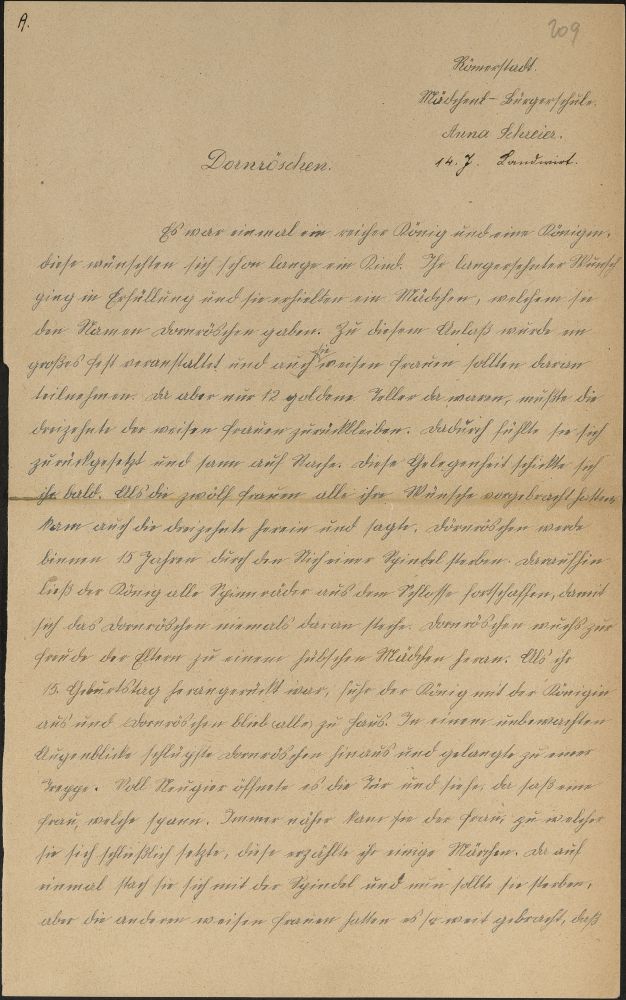 A.
209
Römerstadt.
Mädchen-Bürgerschule.
Anna Schreier.
14. J. Landwirt.
Dornröschen.
Es war einmal ein reicher König und eine Königin,
diese wünschten sich schon lange ein Kind. Ihr langersehnter Wunsch
ging in Erfüllung und sie erhielten ein Mädchen, welchem sie
den Namen Dornröschen gaben. Zu diesem Anlaß wurde ein
großes Fest veranstaltet und auch die weisen Frauen sollten daran
teilnehmen. Da aber nur 12 goldene Teller da waren, mußte die
dreizehnte der weisen Frauen zurückbleiben. Dadurch fühlte sie sich
zurückgesetzt und sann auf Rache. Diese Gelegenheit schickte sich
ihr bald. Als die zwölf Frauen alle ihre Wünsche vorgebracht hatten,
kam auch die dreizehnte herein und sagte, Dornröschen werde
binnen 15 Jahren durch den Stich einer Spindel sterben. Daraufhin
ließ der König alle Spinnräder aus dem Schlosse fortschaffen, damit
sich das Dornröschen niemals daran steche. Dornröschen wuchs zur
Freude der Eltern zu einem hübschen Mädchen heran. Als ihr
15. Geburtstag herangerückt war, fuhr der König mit der Königin
aus und Dornröschen blieb alle zu Haus. In einem unbewachten
Augenblicke schlüpfte Dornröschen hinaus und gelangte zu einer
Treppe. Voll Neugier öffnete es die Tür und siehe, da saß eine
Frau, welche spann. Immer näher kam sie der Frau, zu welcher
sie sich schließlich setzte, diese erzählte ihr einige Märchen. Da auf
einmal stach sie sich mit der Spindel und nun sollte sie sterben,
aber die anderen weisen Frauen hatten es so weit gebracht, daß